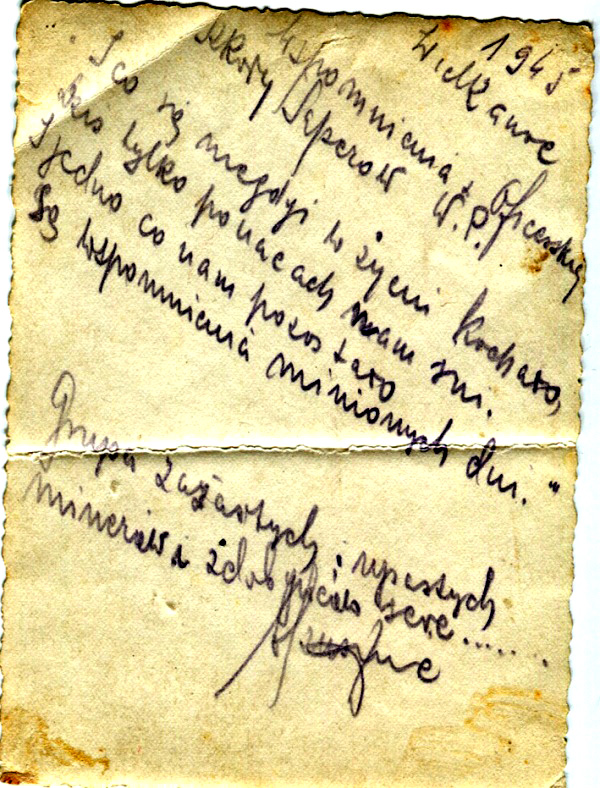 1945
Wielkanoc
Wspomnienia z Oficerskiej
Szkoły Saperów W.P.
"I co się niegdyś w życiu kochało,
Dziś tylko po nocach nam śni.
I jedno co nam pozostało
Są wspomnienia minionych dni."
Grupa zażartych i upartych
minerów i zdobywców serc.......